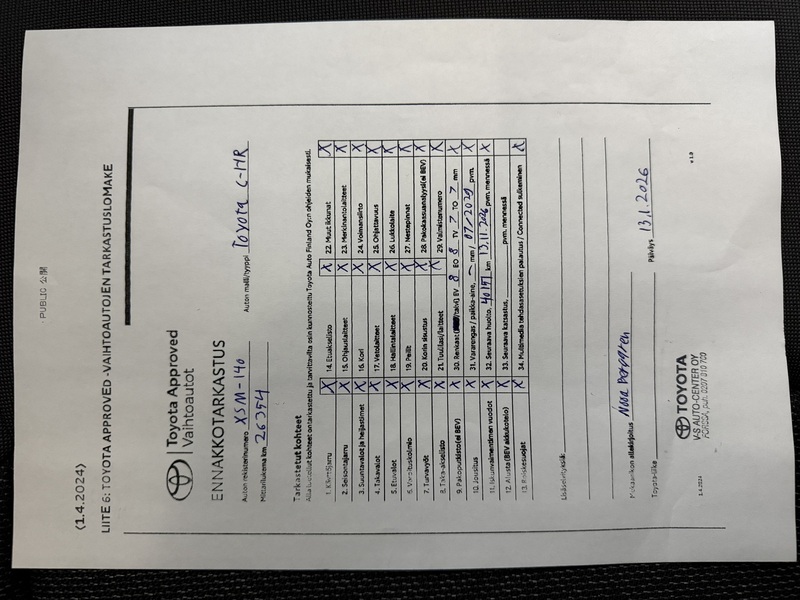 PUBLIC 公開
(1.4.2024)
LIITE 6: TOYOTA APPROVED -VAIHTOAUTOJEN TARKASTUSLOMAKE
Toyota Approved
Vaihtoautot
ENNAKKOTARKASTUS
Auton rekisterinumero XSM-140 Auton malli/tyyppi Toyota C-HR
Mittarilukema km 26354
Tarkastetut kohteet
Alla luetellut kohteet on tarkastettu ja tarvittavilta osin kunnostettu Toyota Auto Finland Oy:n ohjeiden mukaisesti.
1. Käsijarru X 14. Etuakselisto X 22. Muut ikkunat X
2. Seisontajarru X 15. Ohjauslaitteet X 23. Merkinantolaitteet X
3. Suuntavalot ja heijastimet X 16. Kori X 24. Voimansiirto X
4. Takavalot X 17. Vetolaitteet X 25. Ohjattavuus X
5. Etuvalot X 18. Hallintalaitteet X 26. Lukkolaite X
6. Varoituskolmio X 19. Peilit X 27. Nestepinnat X
7. Turvavyöt X 20. Korin sisustus X 28. Pakokaasuanalyysi(ei BEV) X
8. Taka-akselisto X 21. Tuulilasi/laitteet X 29. Valmistenumero X
9. Pakoputkisto(ei BEV) X 30. Renkaat ( /talvi), EV 8 EO 8 TV 7 TO 7 mm X
10. Jousitus X 31. Vararengas / paikka-aine, – mm / 07/2029 pvm. X
11. Iskunvaimentimien vuodot X 32. Seuraava huolto, 40197 km 13.11.2026 pvm. mennessä X
12. Alusta(BEV akkukotelo) X 33. Seuraava katsastus, pvm. mennessä
13. Roiskesuojat X 34. Multimedia tehdasasetuksien palautus / Connected sulkeminen X
Lisäselvityksiä:
Mekaanikon allekirjoitus Päiväys 13.1.2026
Toyota-liike
TOYOTA
V-S AUTO-CENTER OY
FORSSA, puh. 0207 010 700
1.4.2024 v 1.9